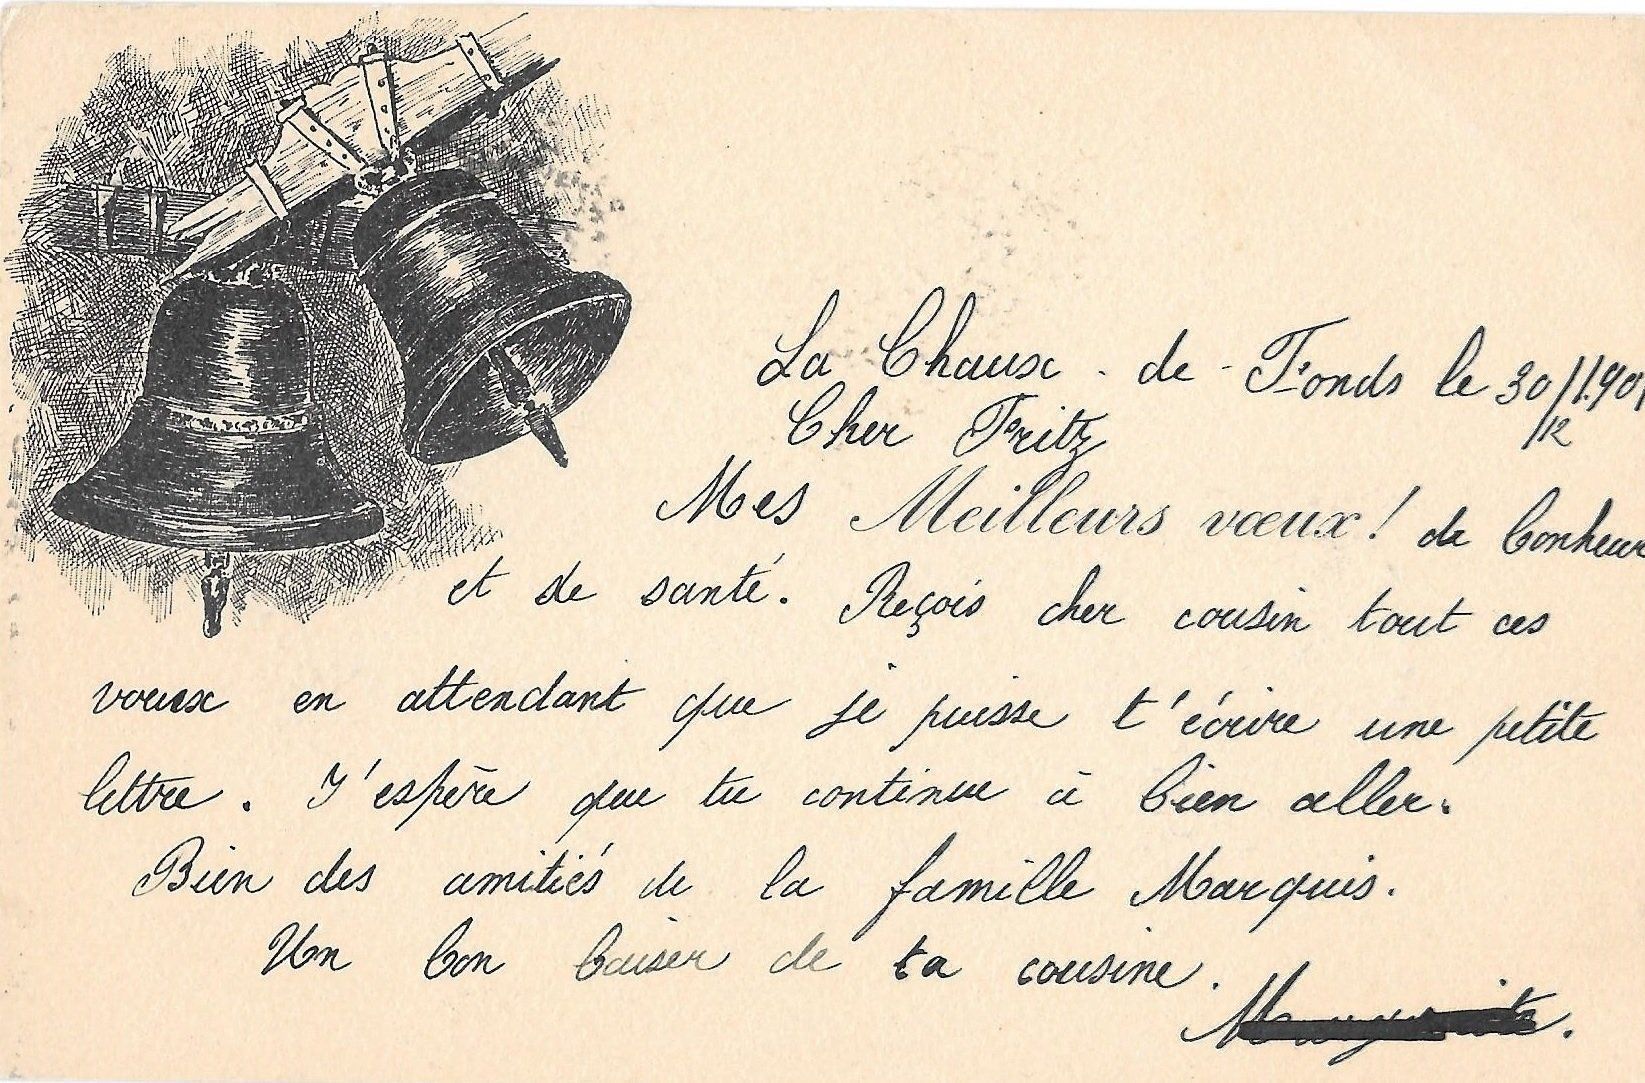 La Chaux-de-Fonds le 30/12 1901
Cher Fritz
Mes Meilleurs vœux! de bonheur
et de santé. Reçois cher cousin tout ces
voeux en attendant que je puisse t'écrire une petite
lettre. J'espère que tu continue à bien aller.
Bien des amitiés de la famille Marquis.
Un bon baiser de ta cousine.